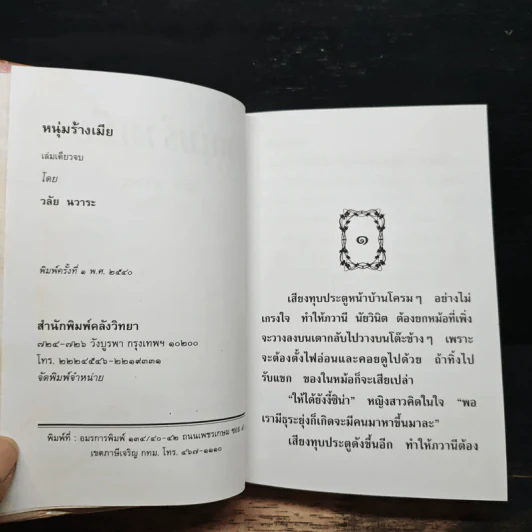 หนุ่มร้างเมีย
เล่มเดียวจบ
โดย
วลัย นวาระ
พิมพ์ครั้งที่ ๑ พ.ศ. ๒๕๔๐
สำนักพิมพ์คลังวิทยา
๗๒๔-๗๒๖ วังบูรพา กรุงเทพฯ ๑๐๒๐๐
โทร. ๒๒๒๔๕๔๖-๒๒๑๙๓๓๑
จัดพิมพ์จำหน่าย
พิมพ์ที่ : อมรการพิมพ์ ๑๓๔/๔๐-๔๒ ถนนเพชรเกษม ซอย
เขตภาษีเจริญ กทม. โทร. ๔๖๗-๑๑๑๐
๑
เสียงทุบประตูหน้าบ้านโครมๆ อย่างไม่
เกรงใจ ทำให้ภวานี นัยวินิต ต้องยกหม้อที่เพิ่ง
จะวางลงบนเตากลับไปวางบนโต๊ะข้างๆ เพราะ
จะต้องตั้งไฟอ่อนและคอยดูไปด้วย ถ้าทิ้งไป
รับแขก ของในหม้อก็จะเสียเปล่า
"ให้ได้ยังงี้ซิน่า" หญิงสาวคิดในใจ "พอ
เรามีธุระยุ่งก็เกิดจะมีคนมาหาขึ้นมาละ"
เสียงทุบประตูดังขึ้นอีก ทำให้ภวานีต้อง